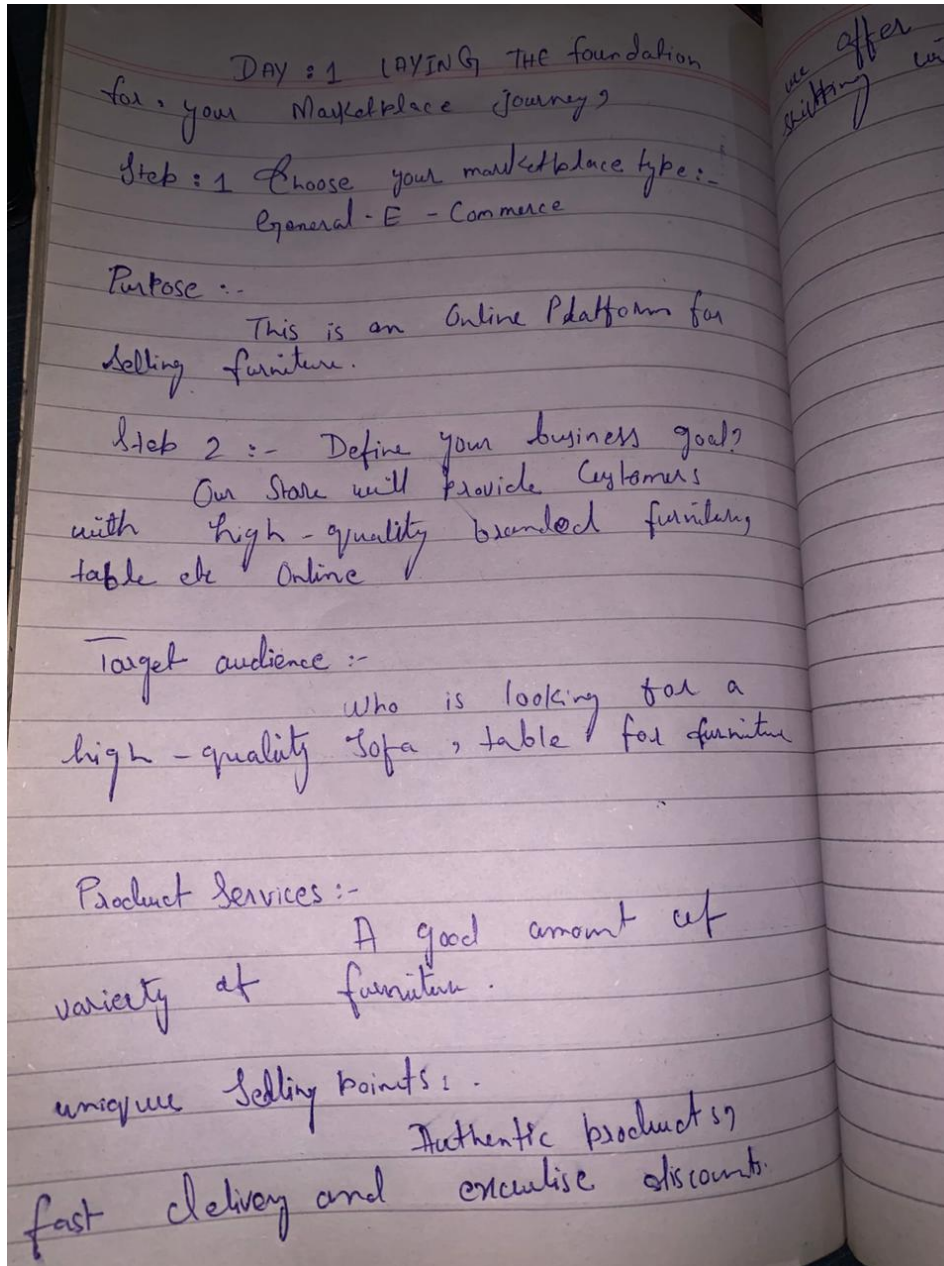 DAY : 1 LAYING THE foundation
for, your Marketplace journey?
Step : 1 Choose your marketplace type :-
General - E - Commerce
Purpose :-
This is an Online Platform for
selling furniture.
Step 2 :- Define your business goal?
Our Store will provide Customers
with high-quality branded
table etc Online
Target audience :-
Who is looking for a
high-quality Sofa, table for furniture
Product Services :-
A good amount of
varierty of furniture.
unique Selling points :-
Authentic products,
fast delivery and discounts.
we offer